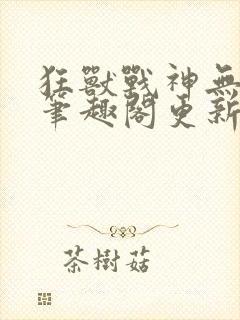 狂獸戰神無
筆趣閣更新
茶樹菇